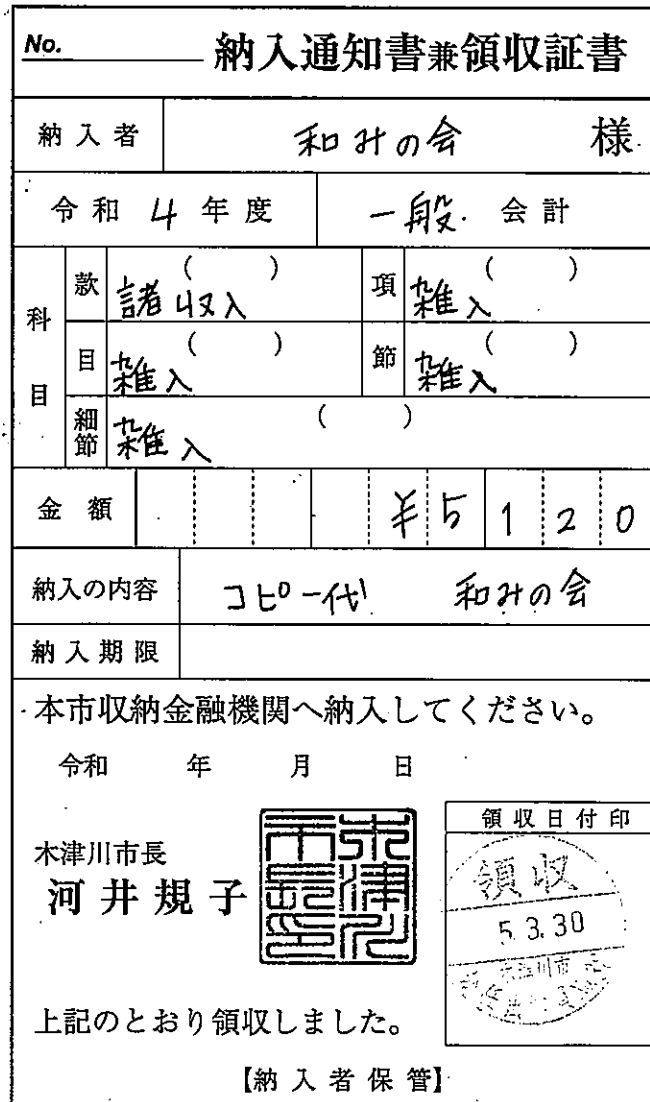 No. 納入通知書兼領収証書
納入者 和みの会 様
令和 4 年度 一般 会計
科目 款 ( ) 諸収入 項 ( ) 雑入
目 ( ) 雑入 節 ( ) 雑入
細節 ( ) 雑入
金額 ¥5120
納入の内容 コピー代 和みの会
納入期限
本市収納金融機関へ納入してください。
令和 年 月 日
領収日付印
木津川市長
河井規子
木津川市長之印
領収
5.3.30
木津川市
上記のとおり領収しました。
【納入者保管】